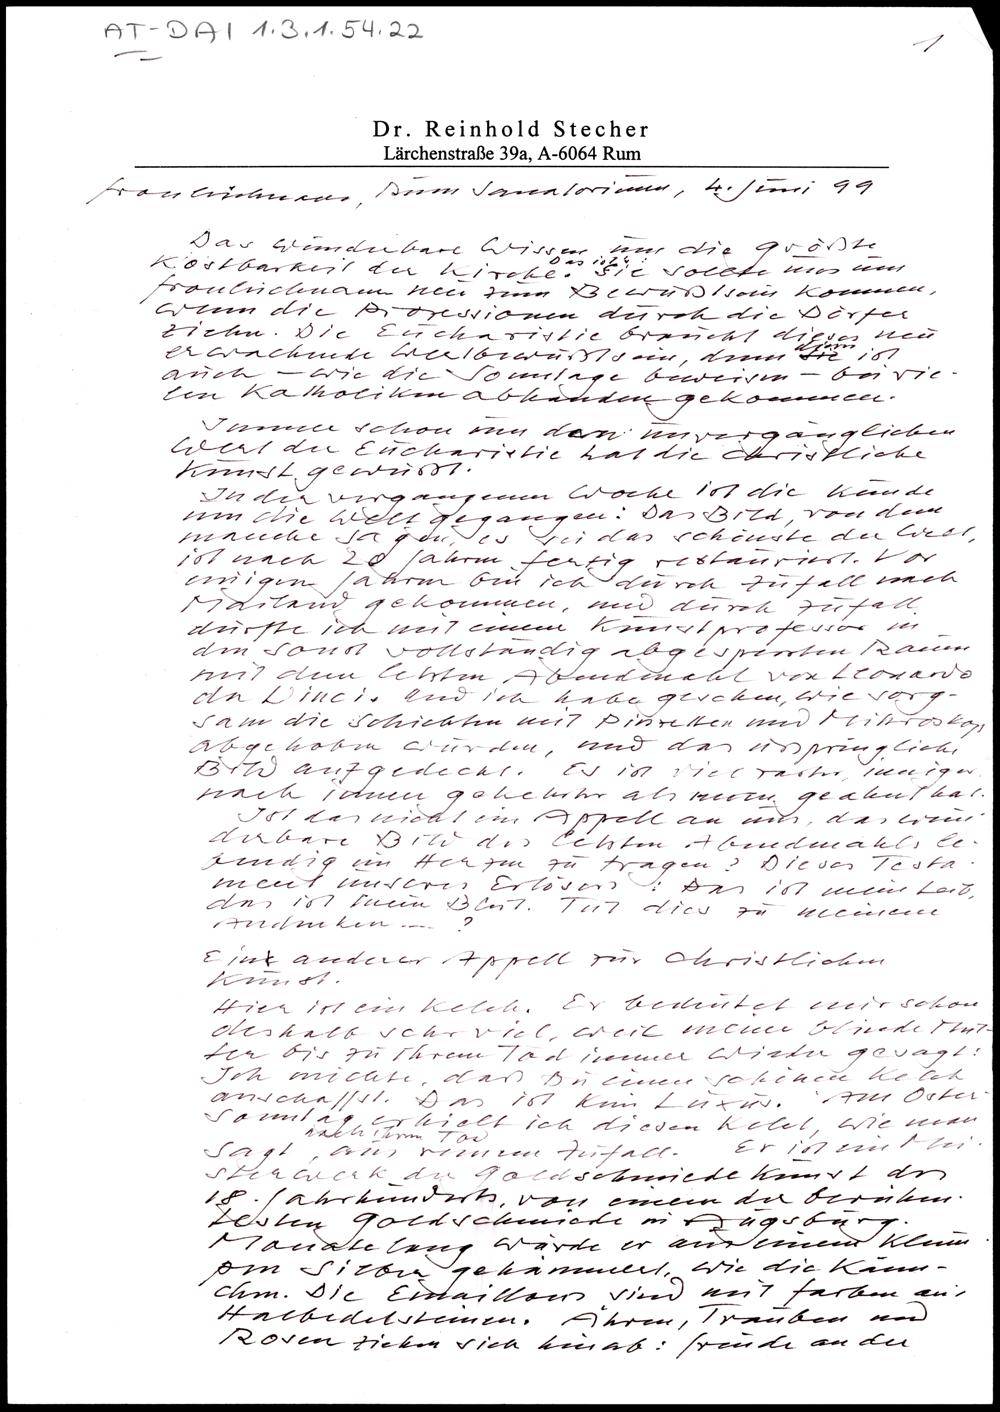 AT-DAI 1.3.1.54.22
1
Dr. Reinhold Stecher
Lärchenstraße 39a, A-6064 Rum
Fronleichnam, Rum Sanatorium, 4. Juni 99
Das wunderbare Wissen um die größte
Kostbarkeit der Kirche. Das ist's! Sie sollte uns um
Fronleichnam neu zum Bewußtsein kommen,
wenn die Prozessionen durch die Dörfer
ziehn. Die Eucharistie braucht dieses neu
erwachende Wertbewußtsein, denn dieses ist
auch – wie die Sonntage beweisen – bei vie-
len Katholiken abhanden gekommen.
Immer schon um den unvergänglichen
Wert der Eucharistie hat die christliche
Kunst gewußt.
In der vergangenen Woche ist die Kunde
um die Welt gegangen: Das Bild, von dem
manche sagen, es sei das schönste der Welt,
ist nach 20 Jahren fertig restauriert. Vor
einigen Jahren bin ich durch Zufall nach
Mailand gekommen, und durch Zufall
durfte ich mit einem Kunstprofessor in
den sonst vollständig abgesperrten Raum
mit dem letzten Abendmahl von Leonardo
da Vinci. Und ich habe gesehen, wie sorg-
sam die Schichten mit Pinzetten und Mikroskop
abgehoben wurden, und das ursprüngliche
Bild aufgedeckt. Es ist viel zarter, inniger
nach innen gekehrter als man geahnt hat.
Ist das nicht ein Appell an uns, das wun-
derbare Bild des letzten Abendmahls le-
bendig im Herzen zu tragen? Dieses Testa-
ment unseres Erlösers: Das ist mein Leib,
das ist mein Blut. Tut dies zu meinem
Andenken .... ?
Ein anderer Appell zur christlichen
Kunst.
Hier ist ein Kelch. Er bedeutet mir schon
deshalb sehr viel, weil meine blinde Mut-
ter bis zu ihrem Tod immer wieder gesagt:
Ich möchte, daß Du einen schönen Kelch
anschaffst. Das ist kein Luxus. Am Oster-
sonntag erhielt ich diesen Kelch, wie man
nach ihrem Tod
sagt, aus reinem Zufall. Er ist ein Mei-
sterwerk der Goldschmiedekunst des
18. Jahrhunderts, von einem der berühm-
testen Goldschmiede in Augsburg.
Monatelang wurde er aus einem Klum-
pen Silber gehämmert, wie die Känn-
chen. Die Emaillen sind mit Farben aus
Halbedelsteinen. Ähren, Trauben und
Rosen ziehen sich hinab: Freude an der